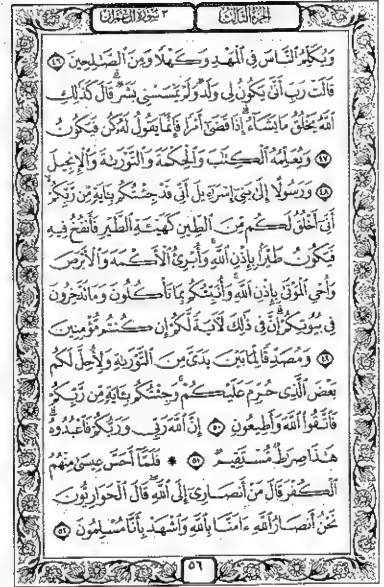 الجزء الثالث
٣ سورة آل عمران
وَيُكَلِّمُ ٱلنَّاسَ فِي ٱلْمَهْدِ وَكَهْلًا وَمِنَ ٱلصَّٰلِحِينَ ٤٦
قَالَتْ رَبِّ أَنَّىٰ يَكُونُ لِي وَلَدٌ وَلَمْ يَمْسَسْنِي بَشَرٌ قَالَ كَذَٰلِكِ
ٱللَّهُ يَخْلُقُ مَا يَشَآءُ إِذَا قَضَىٰٓ أَمْرًا فَإِنَّمَا يَقُولُ لَهُۥ كُن فَيَكُونُ
٤٧ وَيُعَلِّمُهُ ٱلْكِتَٰبَ وَٱلْحِكْمَةَ وَٱلتَّوْرَىٰةَ وَٱلْإِنجِيلَ
٤٨ وَرَسُولًا إِلَىٰ بَنِيٓ إِسْرَٰٓءِيلَ أَنِّي قَدْ جِئْتُكُم بِـَٔايَةٍ مِّن رَّبِّكُمْ
أَنِّيٓ أَخْلُقُ لَكُم مِّنَ ٱلطِّينِ كَهَيْـَٔةِ ٱلطَّيْرِ فَأَنفُخُ فِيهِ
فَيَكُونُ طَيْرًۢا بِإِذْنِ ٱللَّهِ وَأُبْرِئُ ٱلْأَكْمَهَ وَٱلْأَبْرَصَ
وَأُحْيِ ٱلْمَوْتَىٰ بِإِذْنِ ٱللَّهِ وَأُنَبِّئُكُم بِمَا تَأْكُلُونَ وَمَا تَدَّخِرُونَ
فِي بُيُوتِكُمْ إِنَّ فِي ذَٰلِكَ لَـَٔايَةً لَّكُمْ إِن كُنتُم مُّؤْمِنِينَ
٤٩ وَمُصَدِّقًا لِّمَا بَيْنَ يَدَيَّ مِنَ ٱلتَّوْرَىٰةِ وَلِأُحِلَّ لَكُم
بَعْضَ ٱلَّذِي حُرِّمَ عَلَيْكُمْ وَجِئْتُكُم بِـَٔايَةٍ مِّن رَّبِّكُمْ
فَٱتَّقُوا۟ ٱللَّهَ وَأَطِيعُونِ ٥٠ إِنَّ ٱللَّهَ رَبِّي وَرَبُّكُمْ فَٱعْبُدُوهُ
هَٰذَا صِرَٰطٌ مُّسْتَقِيمٌ ٥١ ۞ فَلَمَّآ أَحَسَّ عِيسَىٰ مِنْهُمُ
ٱلْكُفْرَ قَالَ مَنْ أَنصَارِيٓ إِلَى ٱللَّهِ قَالَ ٱلْحَوَارِيُّونَ
نَحْنُ أَنصَارُ ٱللَّهِ ءَامَنَّا بِٱللَّهِ وَٱشْهَدْ بِأَنَّا مُسْلِمُونَ ٥٢
٥٦